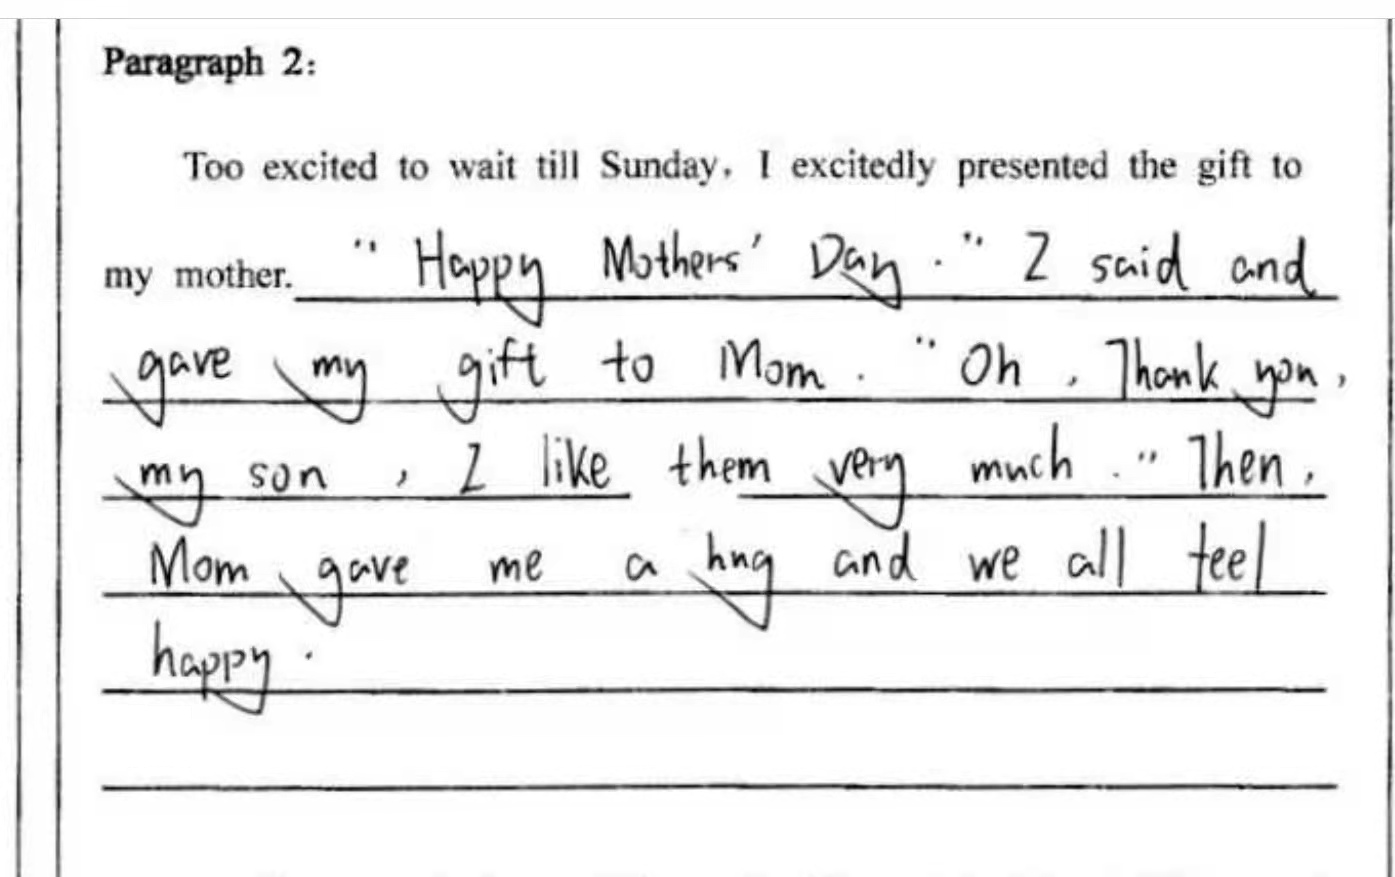 Paragraph 2:
Too excited to wait till Sunday, I excitedly presented the gift to
my mother. " Happy Mothers' Day . " I said and
gave my gift to Mom . " Oh , Thank you ,
my son , I like them very much . " Then ,
Mom gave me a hug and we all feel
happy .